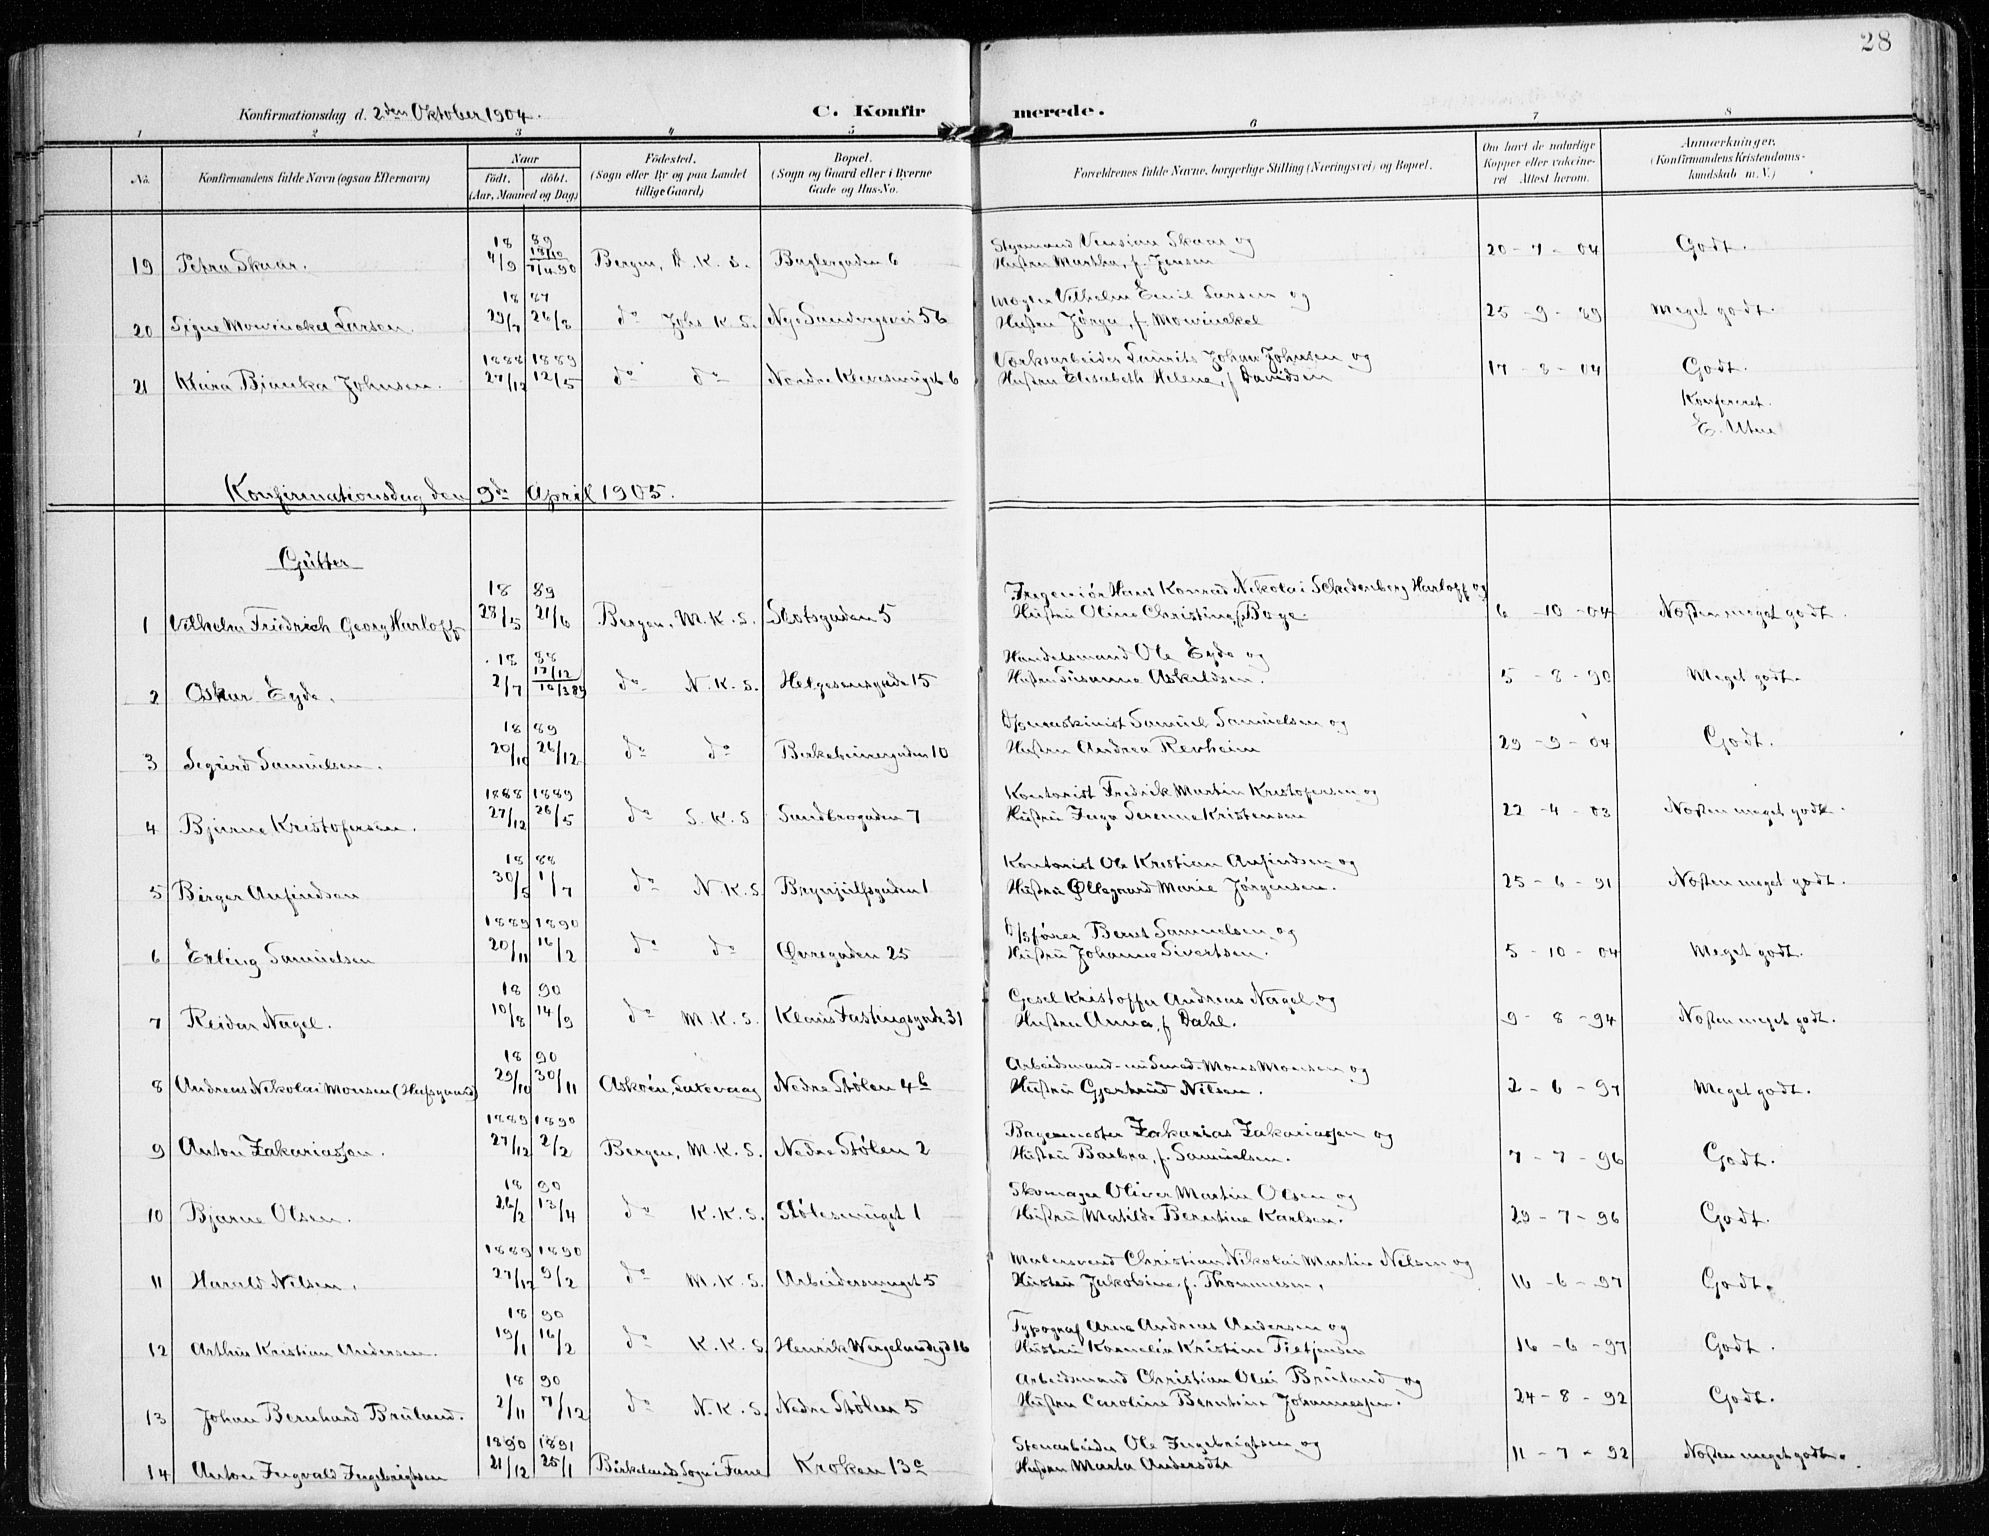 28
Konfirmationsdag d. 2den Oktober 1904. C. Konfirmerede.
1 2 3 4 5 6 7 8
No. Konfirmandens fulde Navn (ogsaa Efternavn) Naar födt. döbt. (Aar, Maaned og Dag) Födested. (Sogn eller By og paa Landet tillige Gaard) Bopæl. (Sogn og Gaard eller i Byerne Gade og Hus-No. Forældrenes fulde Navne, borgerlige Stilling (Næringsvei) og Bopæl. Om havt de naturlige Kopper eller vakcineret. Attest herom. Anmærkninger. (Konfirmandens Kristendomskundskab m. V.)
18 89 Styrmand Skaar og
19 Petra Skaar. 4/9 18/10 7/4 90 Bergen, D. K. S. Baglergaden 6 Hustru Martha, f. Jensen 20-7-04 Godt.
18 87 Mægler Vilhelm Emil Larsen og
20 Signe Mowinckel Larsen. 29/7 26/8 do Johs K. S. Nye Sandvigsvei 56 Hustru Jörga, f. Mowinckel 25-9-89 Meget godt.
1888 1889 Værksarbeider Laurits Johan Johnsen og
21 Klara Bianka Johnsen. 27/12 12/5 do do Nordre Klevesmuget 6 Hustru Elisabeth Helene, f Davidsen 17-8-04 Godt.
Konfereret.
E. Utne
Konfirmationsdag den 9de April 1905.
Gutter
18 89 Ingeniör Hans Konrad Nikolai Harloff og
1 Vilhelm Friedrich Georg Harloff 28/5 21/6 Bergen, M. K. S. Slotsgaden 5 Hustru Oline Christine, f. Boge 6-10-04 Næsten meget godt.
18 88 Handelsmand Ole Eyde og
2 Oskar Eyde. 2/7 17/12 10/3 89 do N. K. S. Helgesensgade 15 Hustru Susanne Askeldsen. 5-8-90 Meget godt.
18 89 D/smaskinist Samuel Samuelsen og
3 Sigurd Samuelsen. 20/10 26/12 do do Birkebeinergaden 10 Hustru Andrea Revheim 29-9-04 Godt.
1888 1889 Kontorist Fredrik Martin Kristofersen og
4 Bjarne Kristofersen. 27/12 26/5 do S. K. S Sandbrogaden 7 Hustru Inga Serenne Kristensen 22-4-03 Næsten meget godt.
18 88 Kontorist Ole Kristian Anfindsen og
5 Birger Anfindsen 30/5 1/7 do N. K. S. Brynjulfsgaden 1 Hustru Øllegaard Marie Jörgensen. 25-6-91 Næsten meget godt.
1889 1890 D/sförer Bernt Samuelsen og
6 Erling Samuelsen 20/11 16/2 do do Øvregaden 25 Hustru Johanne Sivertsen. 5-10-04 Meget godt.
18 90 Gesel Kristoffer Andreas Nagel og
7 Reidar Nagel. 10/8 14/9 do M. K. S. Klaus Fastingsgade 31 Hustru Anna, f Dahl. 9-8-94 Næsten meget godt.
18 90 Arbeidsmand Mons Monsen og
8 Andreas Nikolai Monsen (Hafsgaard) 29/10 30/11 Askøen, Nedre Stølen 4b Hustru Gjertrud Nilsen. 2-6-97 Meget godt.
1889 1890 Bagermester Zakarias Zakariassen og
9 Anton Zakariassen. 27/12 2/2 Bergen, M. K. S. Nedre Stølen 2 Hustru Barbra, f. Samuelsen. 7-7-96 Godt.
18 90 Skomager Oliver Martin Olsen og
10 Bjarne Olsen. 26/2 13/4 do K. K. S. Stølesmuget 1 Hustru Matilde Berntine Karlsen. 29-7-96 Godt.
1889 1890 Malersvend Christian Nikolai Martin Nilsen og
11 Harald Nilsen. 27/12 9/2 do M. K. S. Arbeidersmuget 5 Hustru Jakobine, f. Thommesen. 16-6-97 Godt.
18 90 Typograf Arne Andreas Andersen og
12 Arthur Kristian Andersen. 19/1 16/2 do K. K. S. Henrik Wergelandsgd 16 Hustru Kornelia Kristine Tietjensen 16-6-97 Godt.
18 90 Arbeidsmand Christian Olai Bruland og
13 Johan Bernhard Bruland. 2/11 7/12 do N. K. S. Nedre Stølen 5 Hustru Caroline Berntine Johannessen. 24-8-92 Godt.
1890 1891 Stenarbeider Ole Ingebrigtsen og
14 Anton Ingvald Ingebrigtsen 21/12 25/1 Birkelands Sogn i Fane Kroken 13c Hustru Marta Andersdtr 11-7-92 Næsten meget godt.